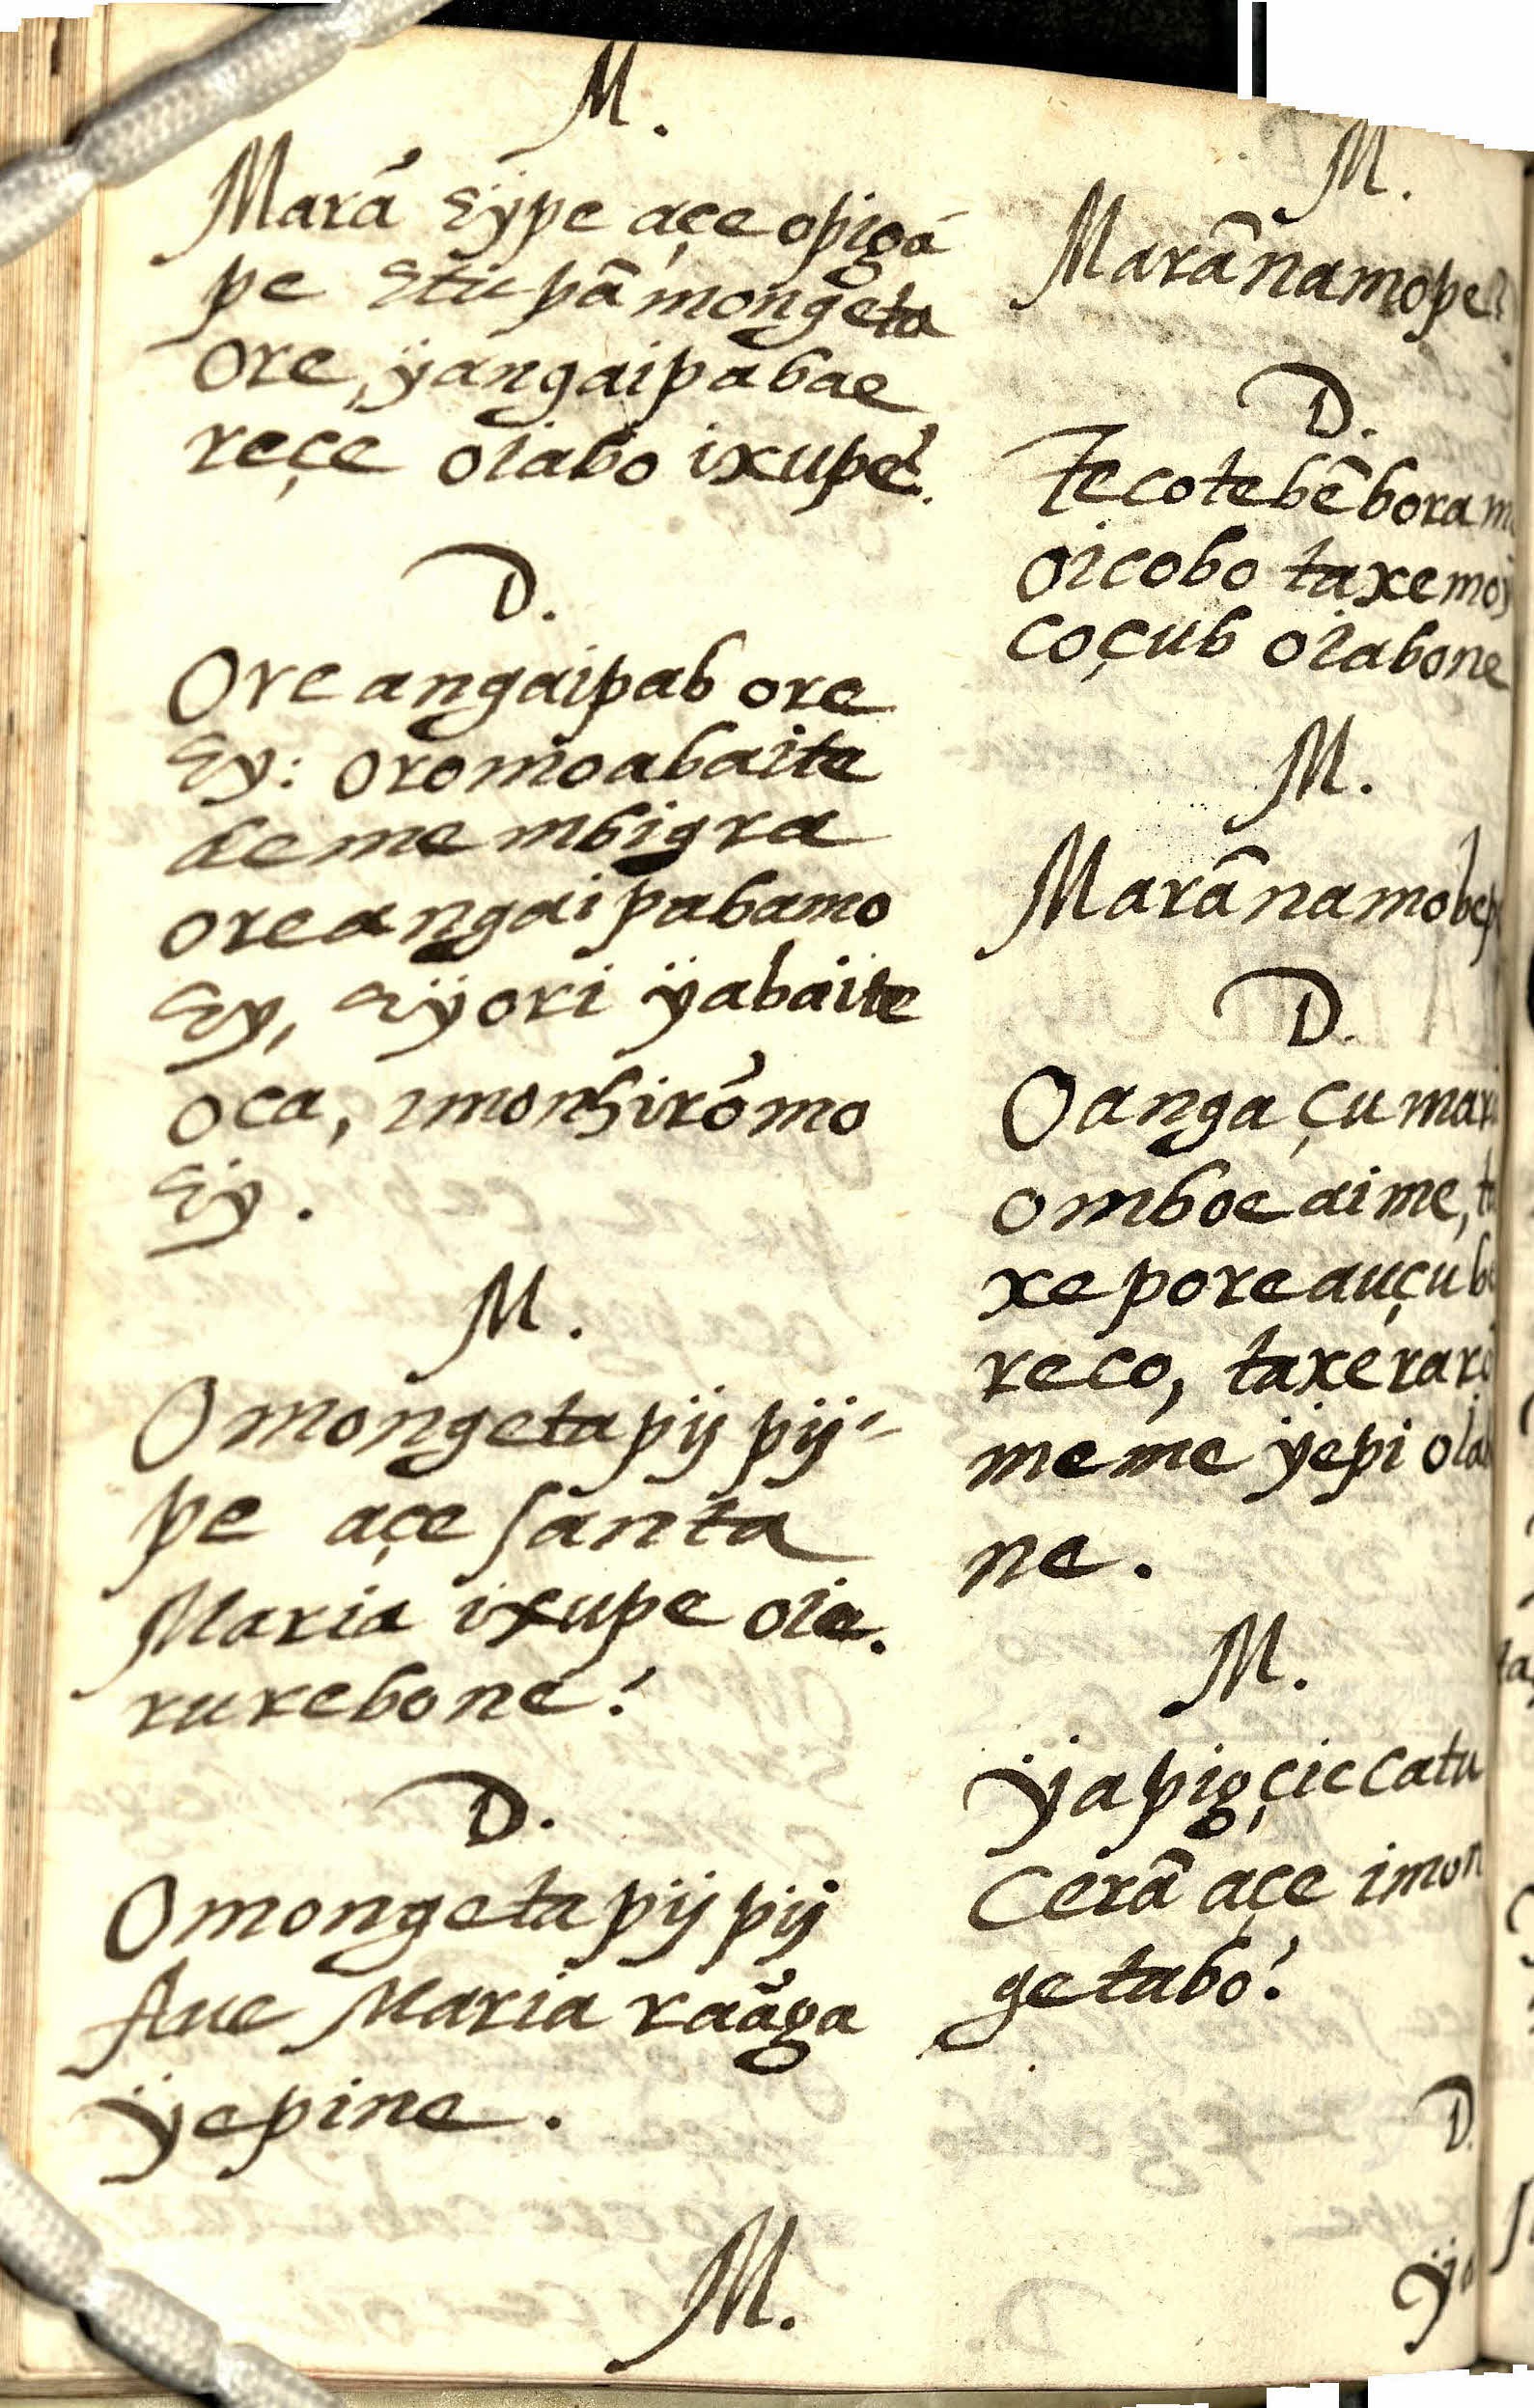 M.
Marã eÿpe açe opiga-
pe etupã mongeta
ore, ÿangaipabae
reçe oiabo ixupé?
D.
Ore angaipab ore
Ey: oromoabaite
de me mbigra
ore angaipabamo
Ey, eÿori ÿabaite
oca, imonhirómo
Ey.
M.
Omongeta pij pij-
pe açe santa
Maria ixupe oie.
rurebone?
D.
Omongeta pij pij
Aue Maria raãga
ÿepine.
M.
M.
Marãnamope?
D.
Tecotebẽboram
oicobo taxemoÿ
coçub oiabone
M.
Marãnamobepe
D.
Oanga çu mar
omboe aime, t
xe poreauçub
reco, taxe rar
meme ÿepi oia
ne.
M.
Ÿapigçic catu
cerã açe imon
getabo?
D.
Ÿa